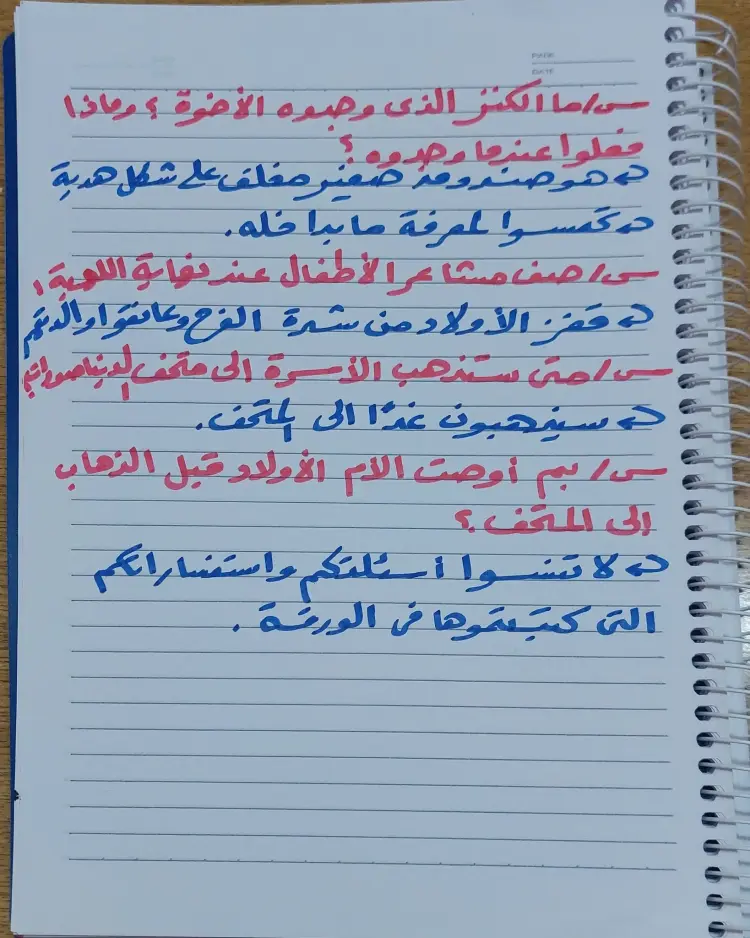 PAGE
DATE
س/ ما الكنز الذى وجدوه الأخوة ؟ وماذا
فعلوا عندما وجدوه ؟
هو صندوق صغير مغلف على شكل هدية
تحمسوا لمعرفة ما بداخله.
س/ صف مشاعر الأطفال عند نهاية اللعبة.
قفز الأولاد من شدة الفرح وعانقوا والدتهم
س/ متى ستذهب الأسرة الى متحف الديناصورات
سيذهبون غدًا الى المتحف.
س/ بم أوصت الأم الأولاد قبل الذهاب
إلى المتحف ؟
لا تنسوا أسئلتكم واستفساراتكم
التى كتبتموها فى الورقة .